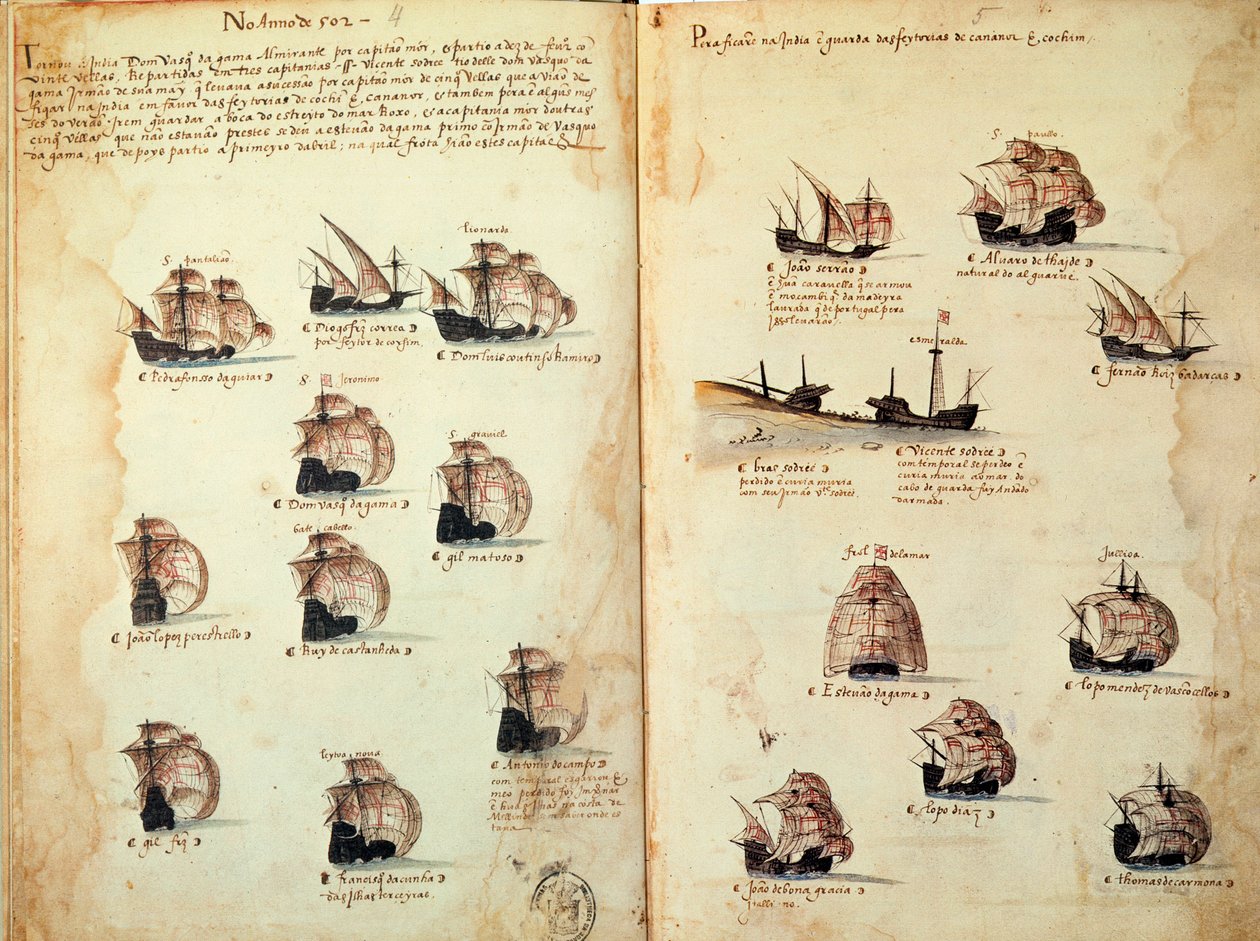 No Anno de 502 –
4
Tornou á India Dom Vasq̃ da gama Almirante por capitaõ mór, e partio a dez de feur̃ cõ
vinte vellas, Repartidas em tres capitanias. Vicente sodree tio delle dom vasquo da
gama Irmaõ de sua may, q̃ levava a sucessaõ por capitaõ mór de cinq̃ vellas que aviaõ de
ficar na India em favor das feytorias de cochĩ &, cananor, e tambem pera ẽ algũs mes
ses do veraõ Irem guardar a boca do estreyto do mar Roxo, e a capitania mór doutras
cinq̃ vellas que naõ estavaõ prestes se deu a estevaõ da gama primo cõ Irmaõ de Vasquo
da gama, que depoys partio a primeyro dabril; na qual frota hiaõ estes capitaẽs
S. pantaliaõ
Pedrafonsso daguiar
Diogo frz̃ correa
por feytor de cochim,
Lionarda
Dom luis coutinho Ramiro
S. Jeronimo
Dom vasq̃ da gama
S. graviel
gil matoso
Joaõ lopez perestrello
bate cabello.
Ruy de castanheda
Antonio do campo
com temporal esgarrou &
meo perdido foy Invernar
ẽ huas Ilhas na costa de
Mellinde sem saber onde es
tava
gil frz̃
leytoa nova
Francisq̃ da cunha
das Ilhas terceyras.
5
Pera ficarẽ na India ẽ guarda das feytorias de cananor &, cochim,
Joaõ serraõ
ẽ hũa caravella q̃ se armou
ẽ mocambiq̃ da madeyra
laurada q̃ de portugal pera
isso levaraõ.
S. paullo.
Alvaro de thajde
natural do algarve.
Fernaõ Roiz̃ badarças
esmeralda
bras sodree
perdido ẽ curia muria
com seu Irmaõ vᵗᵉ sodree.
Vicente sodree
com temporal se perdeo ẽ
curia muria ao mar do
cabo de guarda fuy Andado
darmada.
frol delamar
Estevaõ da gama
Jullioa.
lopo mendez̃ de vasco cellos
lopo diaz̃
Joaõ de bona gracia
Italliano.
thomas de carmona